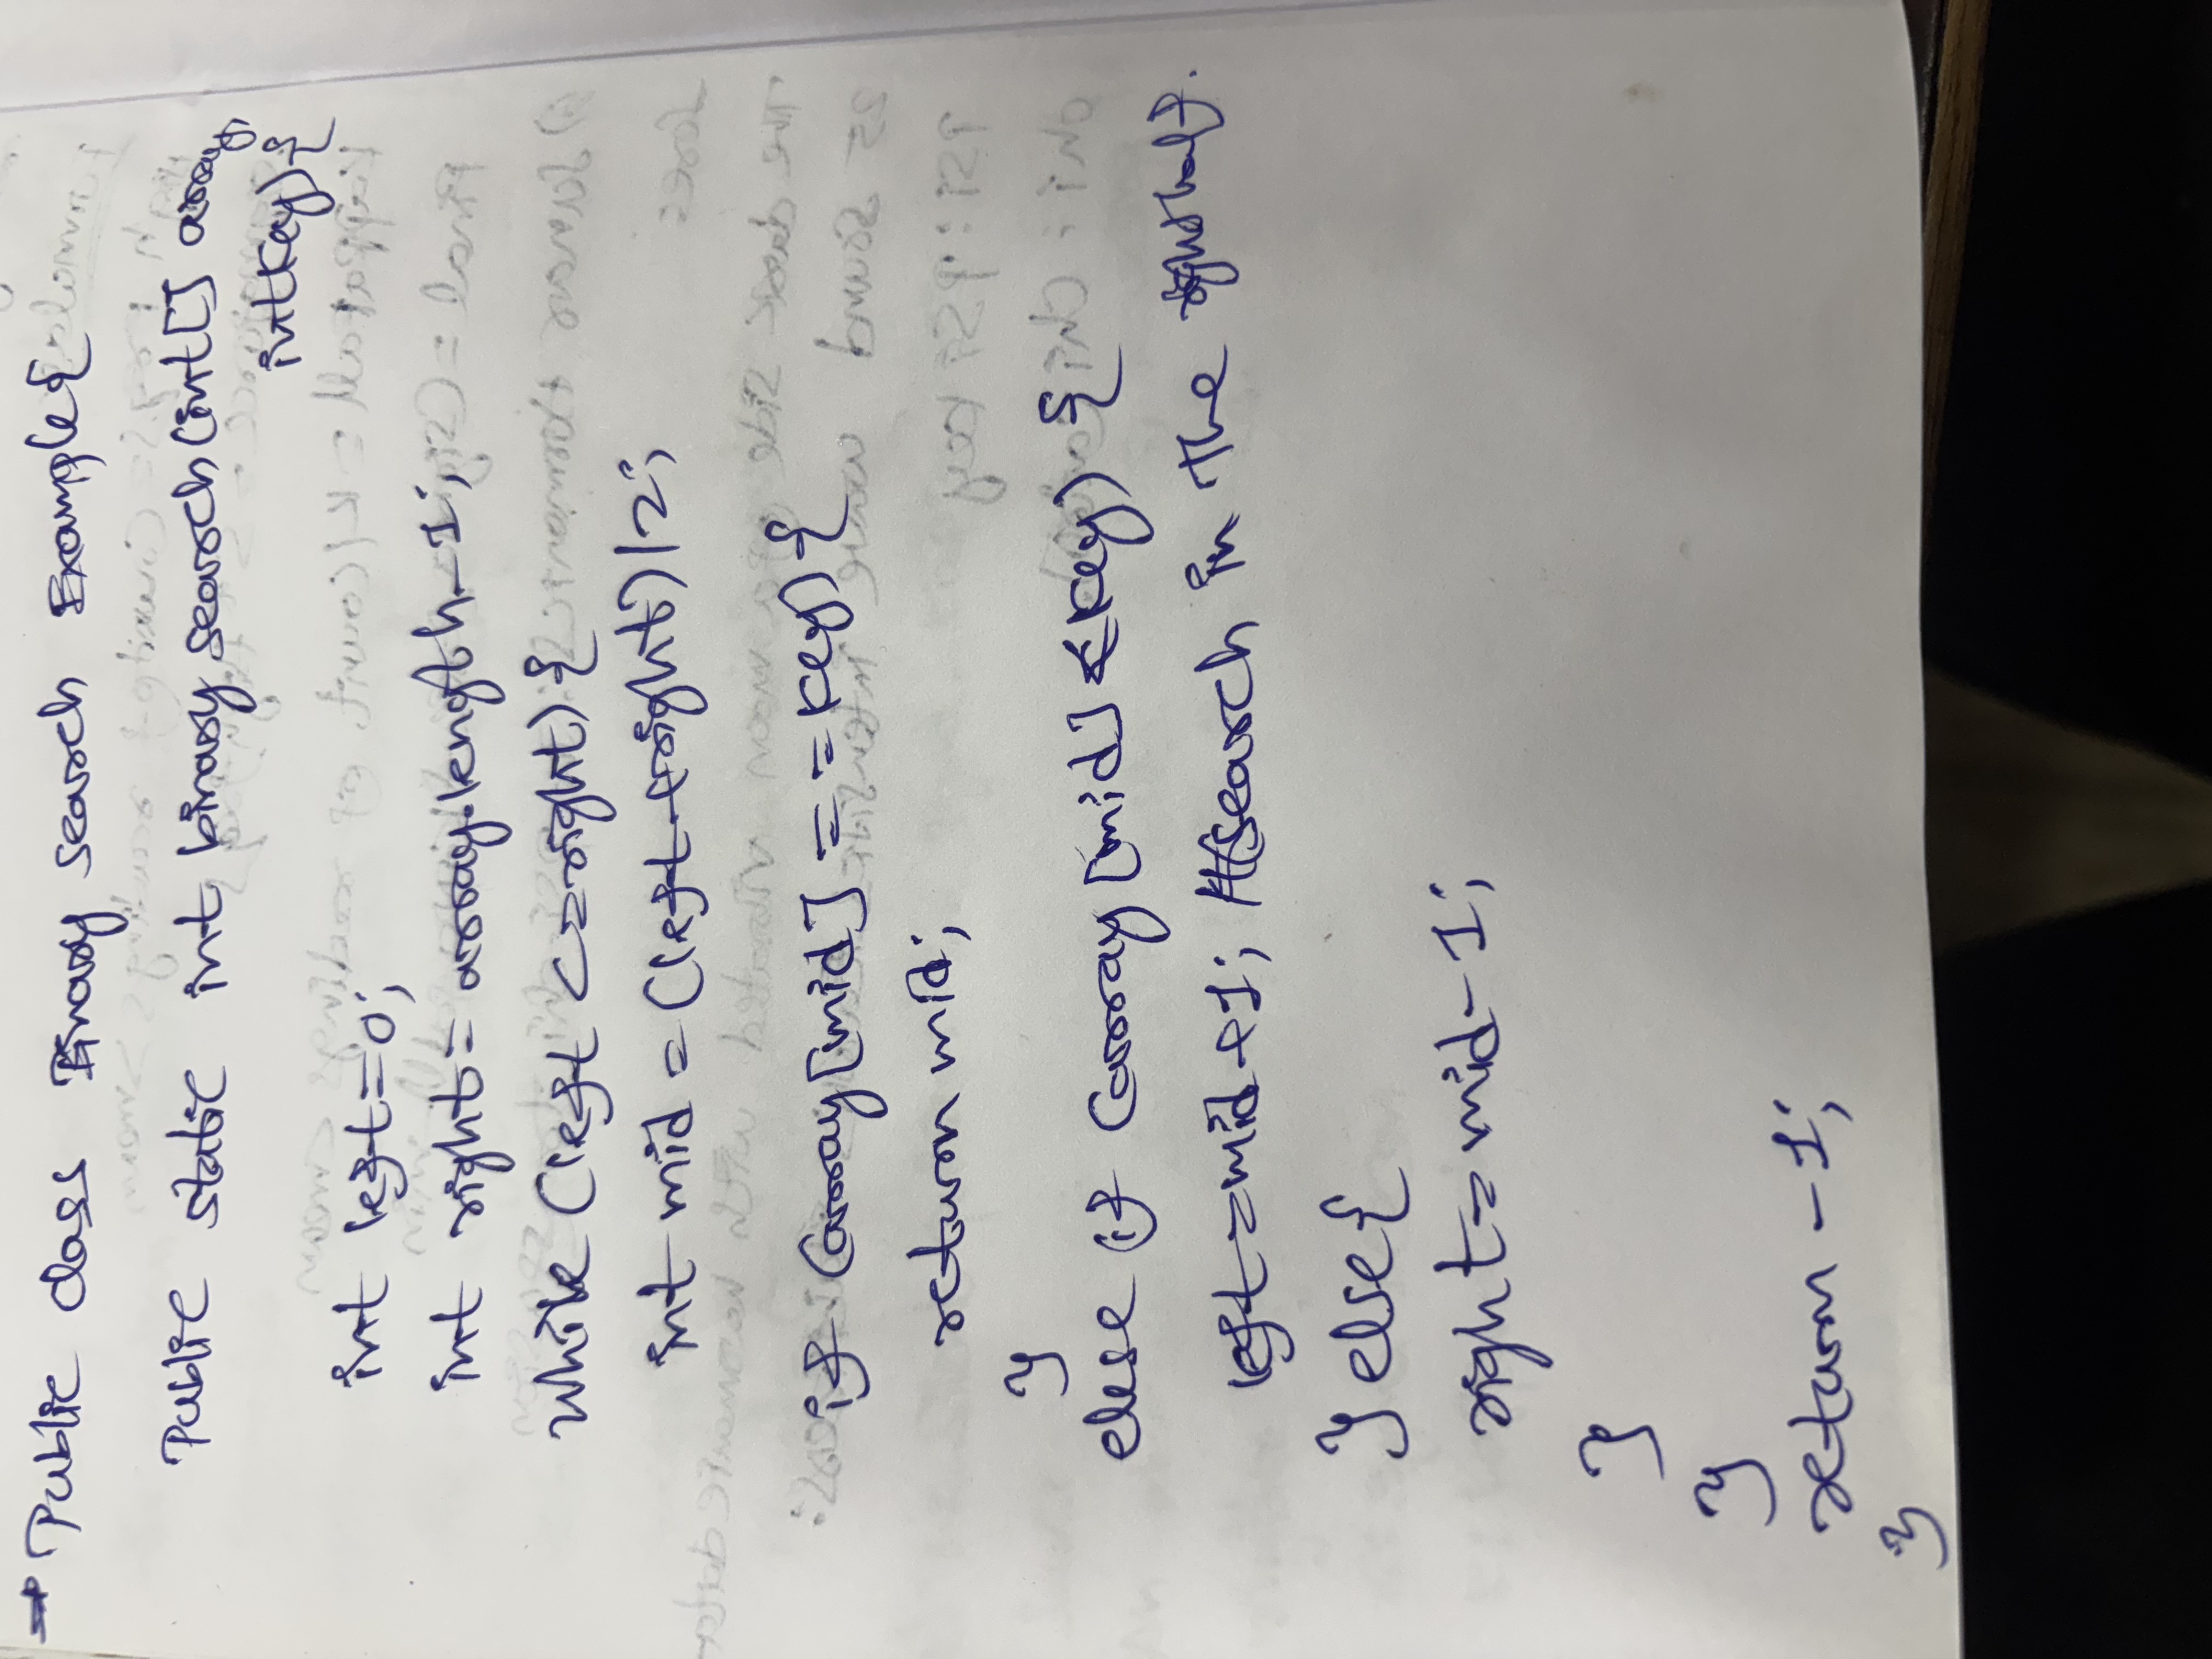 → Public class Binary search Example{
Public static int binary search (int[] array,
int key){
int left=0;
int right= array.length-1;
while (left <=right) {
int mid = (left+right)/2;
if (array[mid] = =key) {
return mid;
}
else if (array [mid] <key) {
left=mid+1; //search in the right half.
} else{
right=mid-1;
}
}
return -1;
}